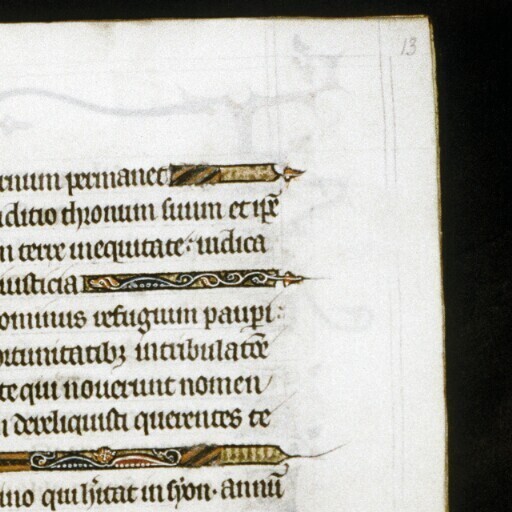 13
rnum permanet
ditio thronum suum et ip̄e
n terre in equitate: iudica
iusticia
ominus refugium paup̲i:
ortunitatibꝫ in tribulatōe
te qui nouerunt nomen
dereliquisti querentes te
ino qui h̓itat in syon. annū